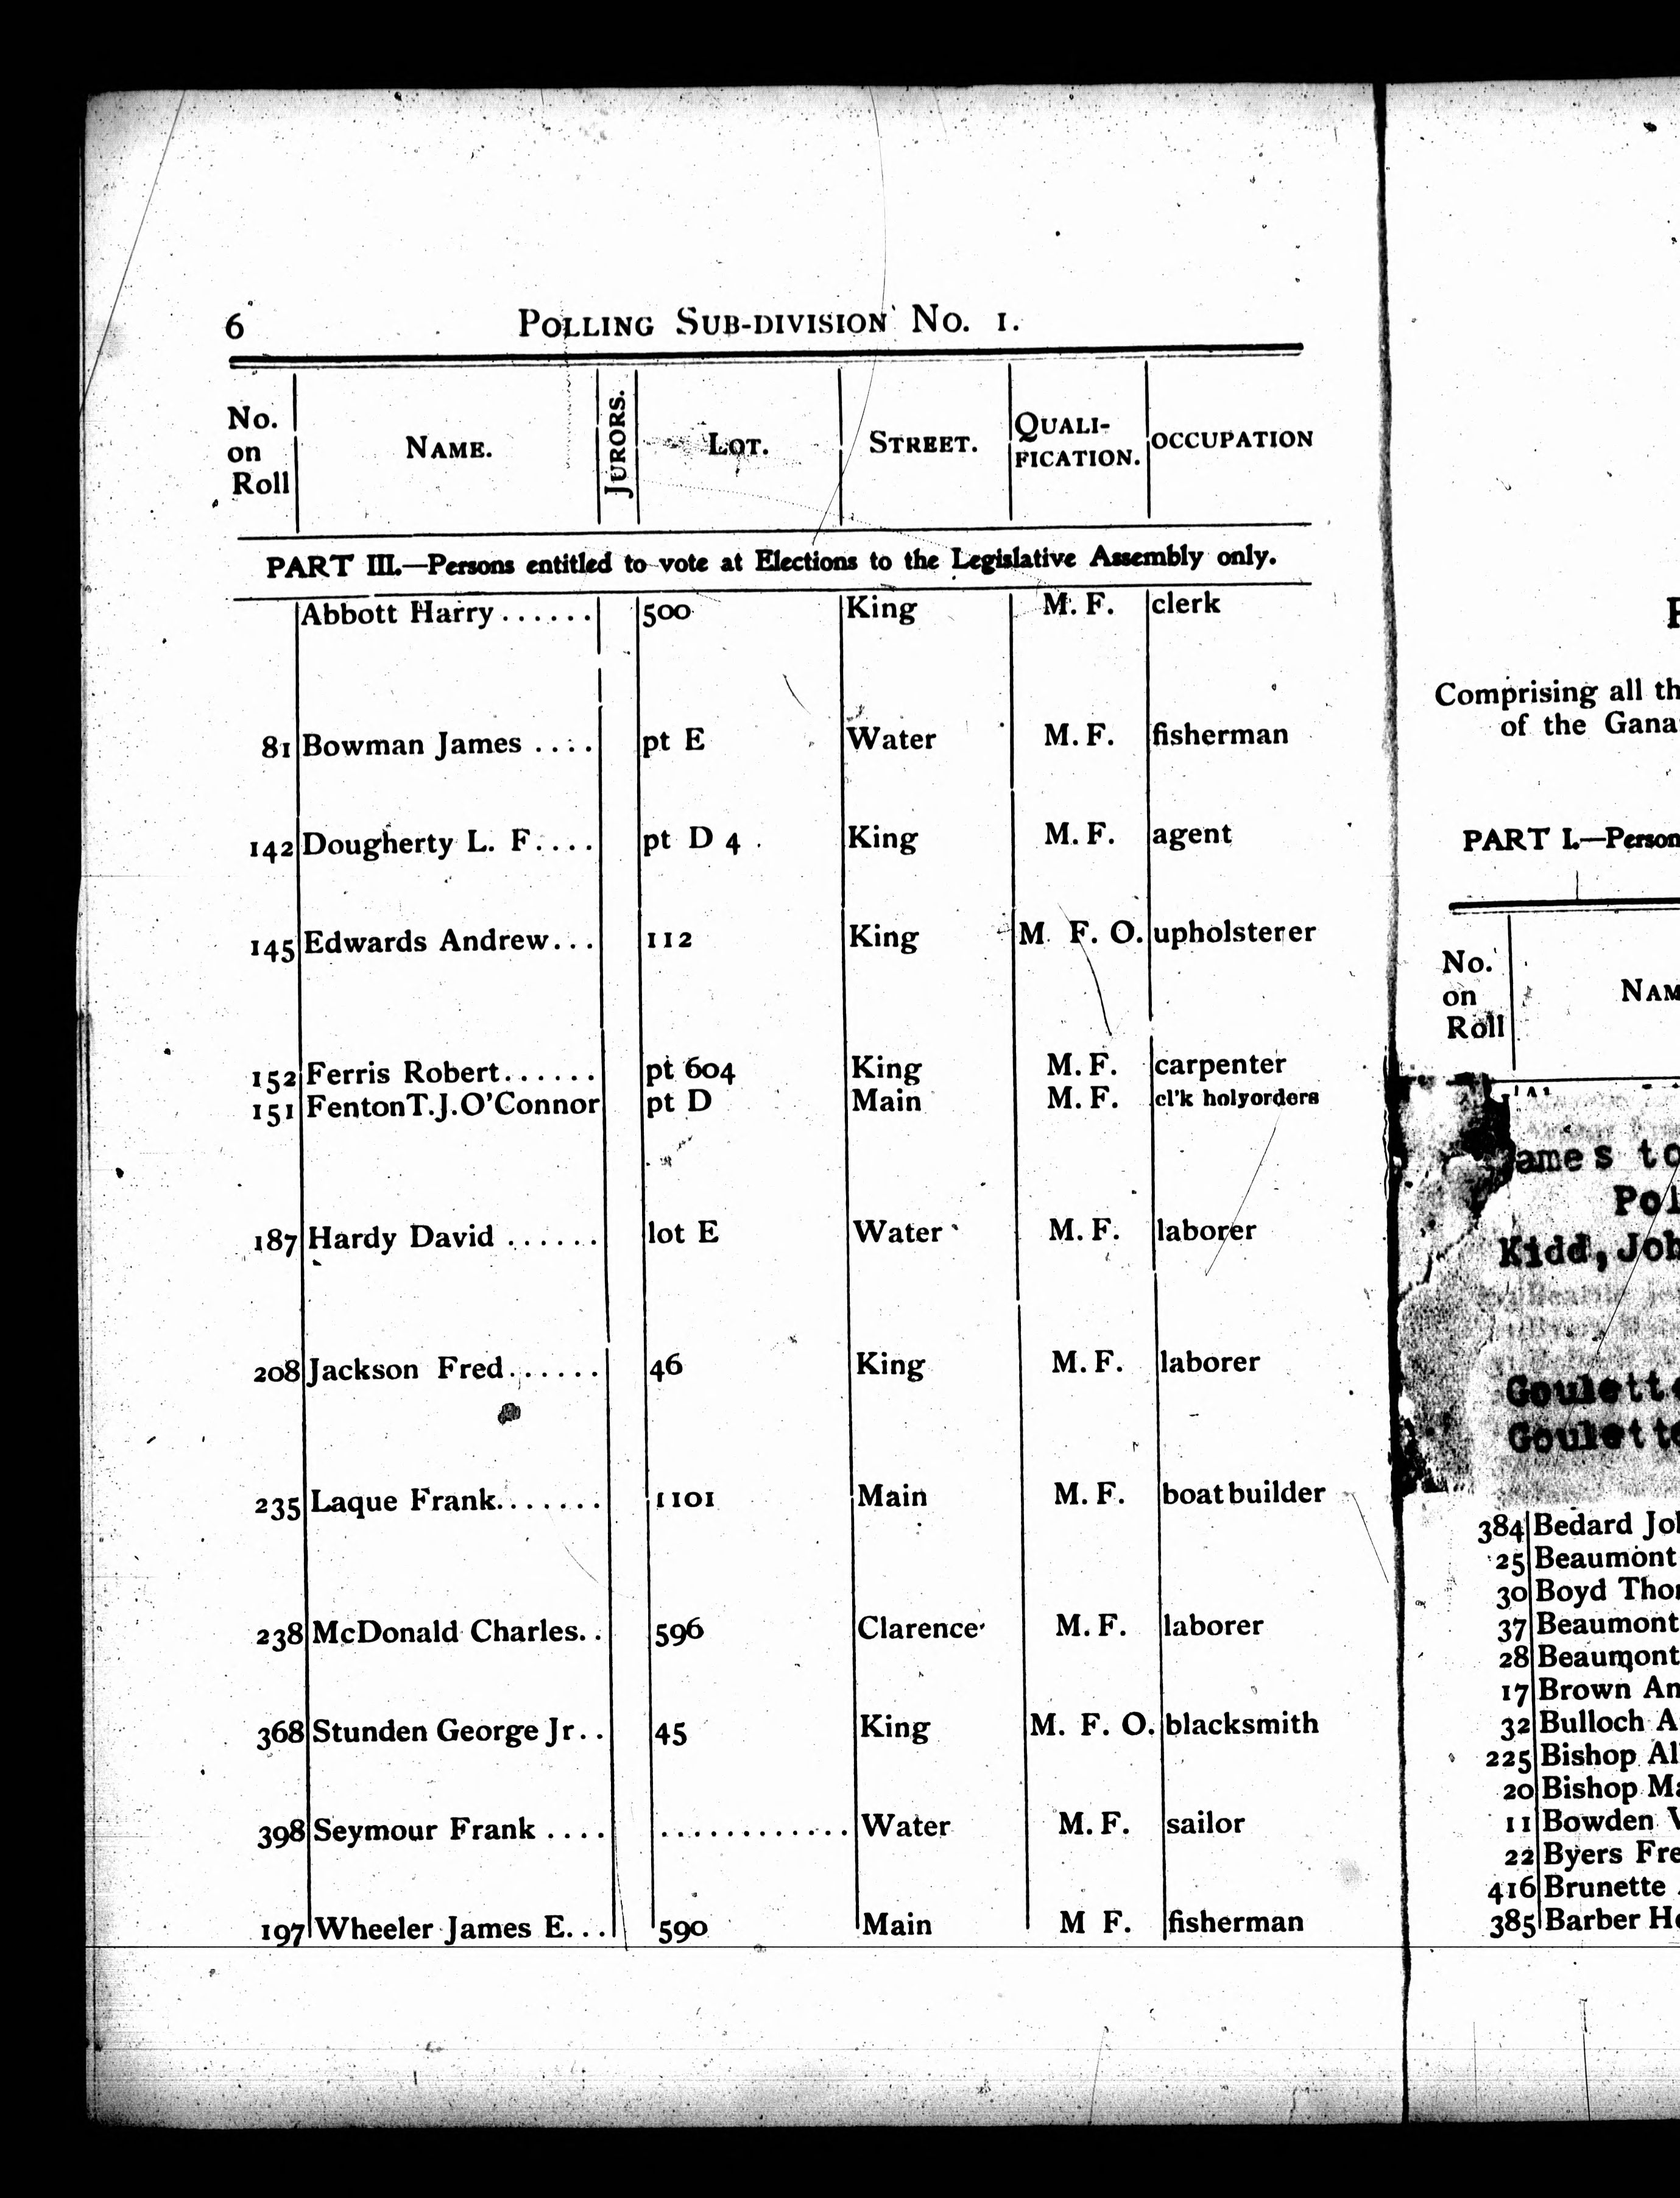 6 POLLING SUB-DIVISION No. 1.
No. on Roll NAME. JURORS. LOT. STREET. QUALI-FICATION. OCCUPATION
PART III.—Persons entitled to vote at Elections to the Legislative Assembly only.
Abbott Harry ...... 500 King M. F. clerk
81 Bowman James .... pt E Water M. F. fisherman
142 Dougherty L. F.... pt D 4 . King M. F. agent
145 Edwards Andrew... 112 King M. F. O. upholsterer
152 Ferris Robert...... pt 604 King M. F. carpenter
151 FentonT.J.O'Connor pt D Main M. F. cl'k holyorders
187 Hardy David ...... lot E Water M. F. laborer
208 Jackson Fred...... 46 King M. F. laborer
235 Laque Frank....... 1101 Main M. F. boatbuilder
238 McDonald Charles.. 596 Clarence M. F. laborer
368 Stunden George Jr.. 45 King M. F. O. blacksmith
398 Seymour Frank .... ............ Water M. F. sailor
197 Wheeler James E... 590 Main M F. fisherman
Comprising all th
of the Gana
PART I.—Person
No. on Roll NAM
ames to
Pol
Kidd, Joh
Goulette
Goulette
384 Bedard Jo
25 Beaumont
30 Boyd Tho
37 Beaumont
28 Beaumont
17 Brown An
32 Bulloch A
225 Bishop Al
20 Bishop Ma
11 Bowden
22 Byers Fre
416 Brunette
385 Barber He